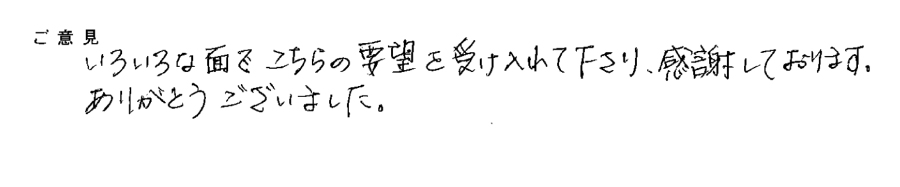 ご意見
いろいろな面でこちらの要望を受け入れて下さり、感謝しております。
ありがとうございました。